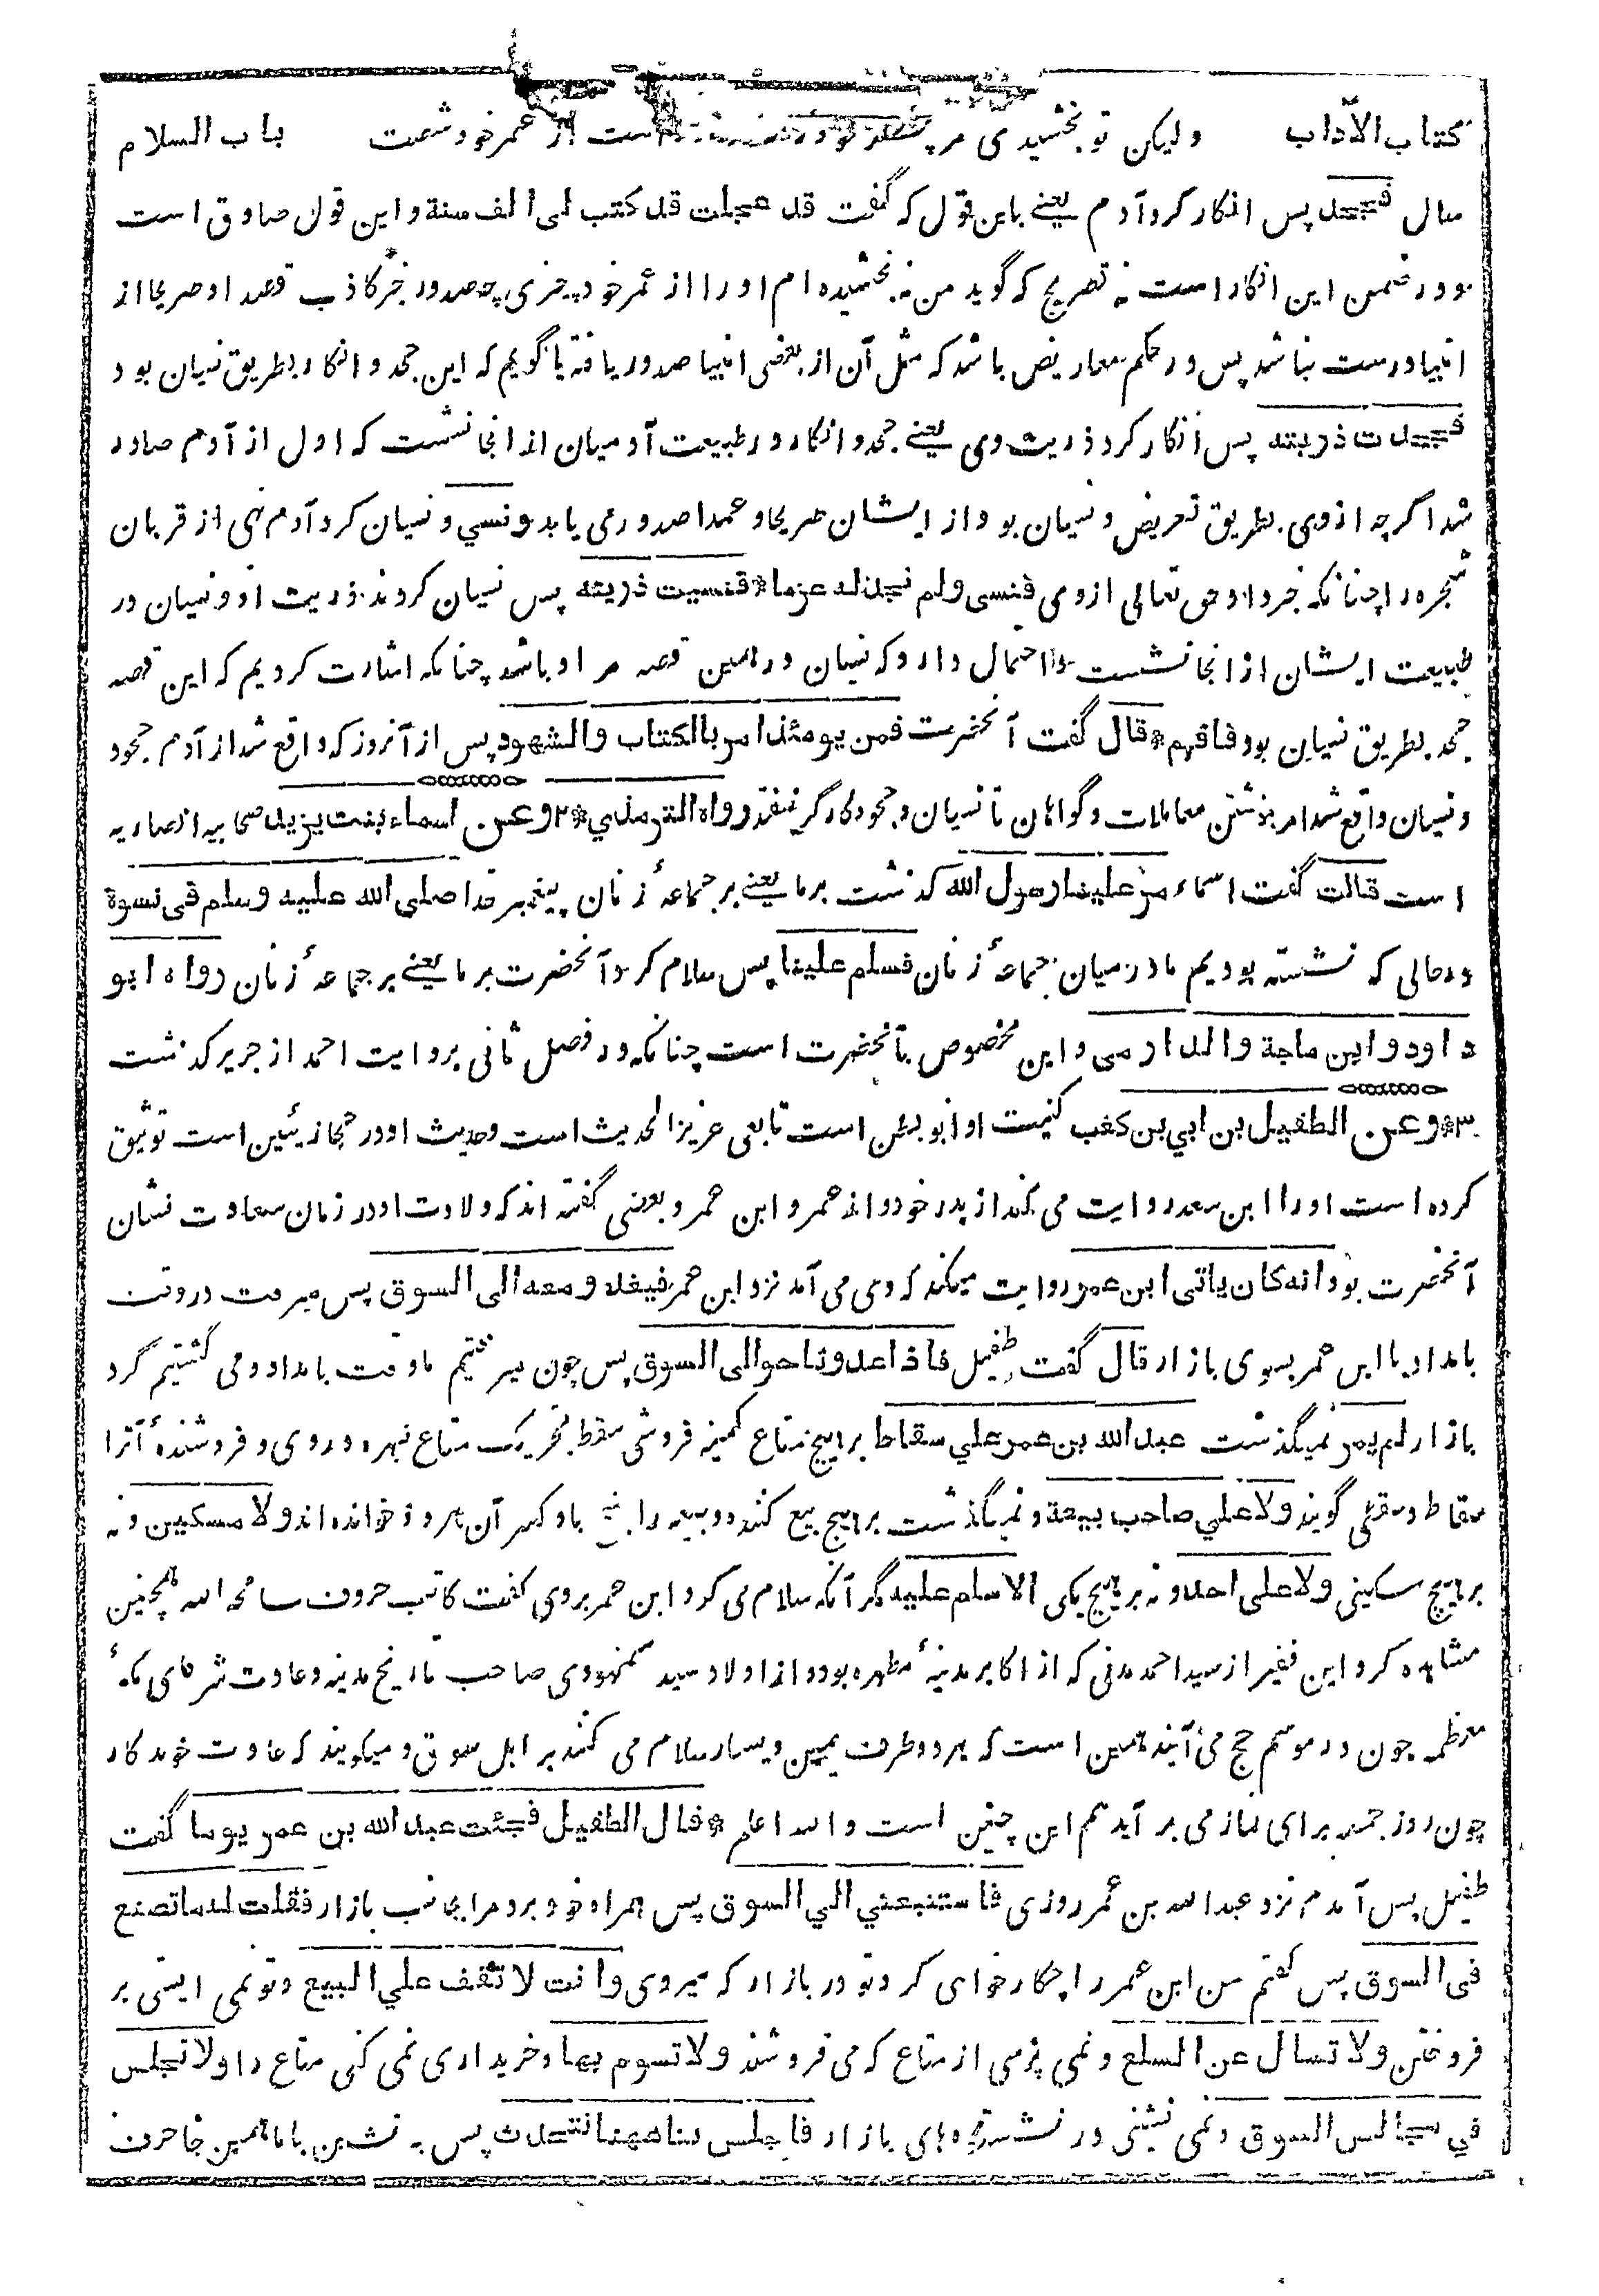 کتاب الآداب ولیکن تو بخشیدی مر پسر تو داود را شصت است از عمر خود شصت باب السلام
سال فجحد پس انکار کرد آدم یعنے باین قول که گفت قد عجلت قد کتب لی الف سنة و این قول صادق است
بود در ضمن این انکار است نه تصریح که گوید من نه بخشیده ام او را از عمر خود چیزی چه صدور خبر کاذب قصدا و صریحا از
انبیا درست نباشد پس در حکم معاریض باشد که مثل آن از بعضی انبیا صدور یافته یا گویم که این جحد و انکار بطریق نسیان بود
فجحدت ذریته پس انکار کرد ذریت وی یعنے جحد و انکار در طبیعت آدمیان از انجا نشست که اول از آدم صادر
شد اگرچه از وی بطریق تعریض و نسیان بود از ایشان صریحا و عمدا صدور می یابد ونسي و نسیان کرد آدم نهی از قربان
شجره را چنانکه خبر داد حق تعالی از وی فنسی ولم نجد له عزما * فنسیت ذریته پس نسیان کردند ذریت او و نسیان در
طبیعت ایشان از انجا نشست و احتمال دارد که نسیان در همین قصه مراد باشد چنانکه اشارت کردیم که این قصه
جحد بطریق نسیان بود فافهم * قال گفت آنحضرت فمن یومئذ امر بالکتاب والشهود پس از آنروز که واقع شد از آدم جحود
و نسیان واقع شد امر بنوشتن معاملات و گواهان تا نسیان و جحود کارگر نیفتد رواه الترمذي * ۲ وعن اسماء بنت یزید صحابیه انصاریه
است قالت گفت اسماء مر علینا رسول الله گذشت بر ما یعنے بر جماعهٔ زنان پیغمبر خدا صلی الله علیه وسلم فی نسوة
در حالی که نشسته بودیم ما در میان جماعهٔ زنان فسلم علینا پس سلام کرد آنحضرت بر ما یعنے بر جماعهٔ زنان رواه ابو
داود وابن ماجة والدارمی و این مخصوص بآنحضرت است چنانکه در فصل ثانی بروایت احمد از جریر گذشت
۳ * وعن الطفیل بن ابي بن کعب کنیت او ابو بطن است تابعی عزیز الحدیث است و حدیث او در حجازیین است توثیق
کرده است او را ابن سعد روایت می کند از پدر خود و از عمر و ابن عمر و بعضی گفته اند که ولادت او در زمان سعادت نشان
آنحضرت بود انه کان یاتی ابن عمر روایت میکند که وی می آمد نزد ابن عمر فیغدو معه الی السوق پس میرفت در وقت
بامداد با ابن عمر بسوی بازار قال گفت طفیل فاذا غدونا حوالی السوق پس چون میرفتیم ما وقت بامداد و می گشتیم گرد
بازار لم یمر نمیگذشت عبد الله بن عمر علي سقاط بر هیچ متاع کمینه فروشی سقط بتحریک متاع نبهره و ردی و فروشندهٔ آنرا
سقاط و سقطی گویند ولا علي صاحب بیعة و نمیگذشت بر هیچ بیع کننده و بیعه را بفتح با و کسر آن هر دو خوانده اند ولا مسکین و نه
بر هیچ مسکینی ولا علی احد و نه بر هیچ یکی الا سلم علیه مگر آنکه سلام می کرد ابن عمر بروی گفت کاتب حروف سامحه الله همچنین
مشاهده کرد این فقیر از سید احمد مدنی که از اکابر مدینهٔ مطهره بود و از اولاد سید سمنهودی صاحب تاریخ مدینه و عادت شرفای مکهٔ
معظمه چون در موسم حج می آیند همین است که بهر دو طرف یمین و یسار سلام می کنند بر اهل سوق و میگویند که عادت خوندکار
چون روز جمعه برای نماز می بر آید هم این چنین است و الله اعلم * قال الطفیل فجئت عبد الله بن عمر یوما گفت
طفیل پس آمدم نزد عبد الله بن عمر روزی فاستتبعني الي السوق پس همراه خود برد مرا بجانب بازار فقلت له ما تصنع
في السوق پس گفتم من ابن عمر را چکار خواهی کرد تو در بازار که میروی وانت لا تقف علي البیع و تو نمی ایستی بر
فروختن ولا تسال عن السلع و نمی پرسی از متاع که می فروشند ولا تسوم بها و خریداری نمی کنی متاع را ولا تجلس
في مجالس السوق و نمی نشینی در نشستگاه‌های بازار فاجلس بنا ههنا نتحدث پس به نشین با ما همین جا حرف